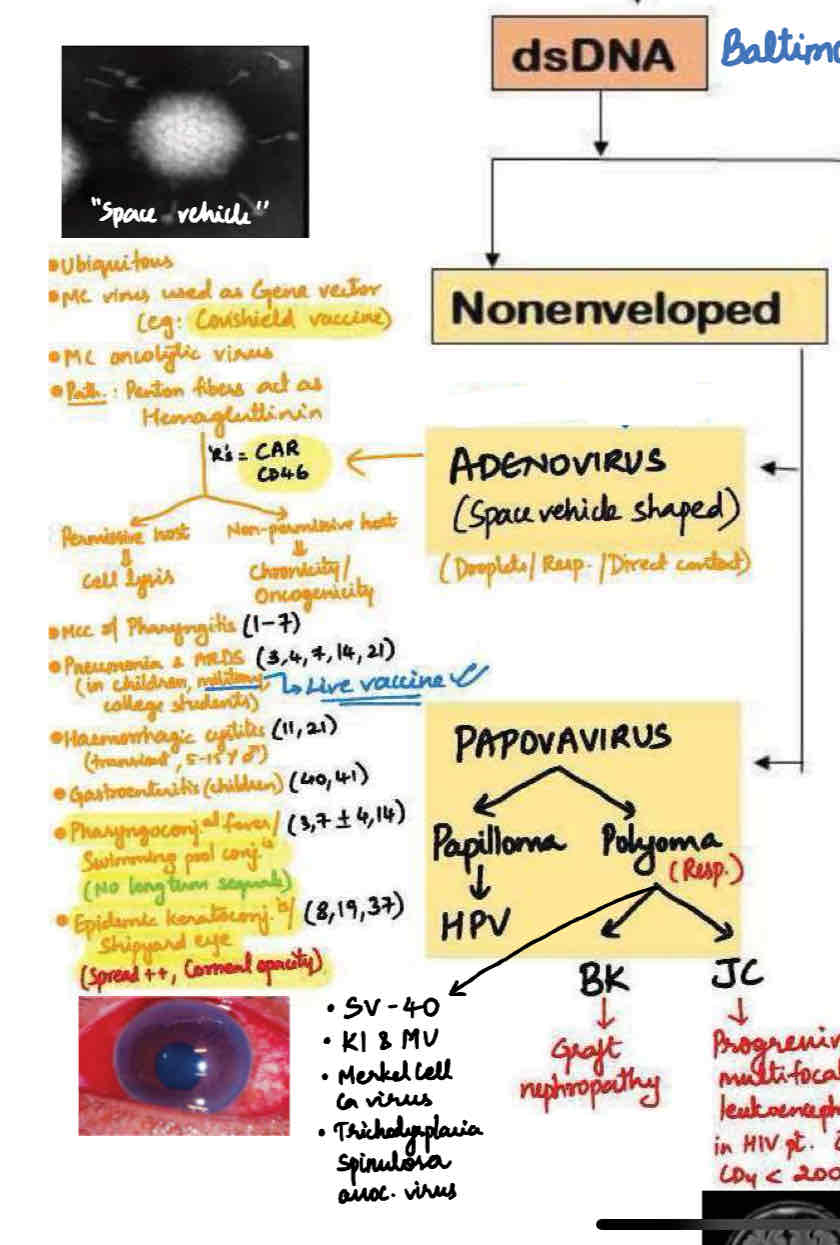 dsDNA
Baltimo
"Space vehicle"
Nonenveloped
• Ubiquitous
• MC virus used as Gene vector
(eg: Covishield vaccine)
• MC oncolytic virus
• Path. : Penton fibers act as
Hemagluttinin
'R's = CAR
CD46
Permissive host
Non-permissive host
Cell lysis
Chronicity/
Oncogenicity
ADENOVIRUS
(Space vehicle shaped)
(Droplets/ Resp. /Direct contact)
• MCC of Pharyngitis (1-7)
• Pneumonia & ARDS (3,4,7,14,21)
(in children, military,
college students)
Live vaccine
• Haemorrhagic cystitis (11,21)
(transient, 5-15 Y ♂)
• Gastroenteritis (children) (40,41)
• Pharyngoconj.al fever/ (3,7 ± 4,14)
Swimming pool conj.is
(No long term sequale)
• Epidemic keratoconj.is/ (8,19,37)
Shipyard eye
(Spread ++, Corneal opacity)
PAPOVAVIRUS
Papilloma
Polyoma
(Resp.)
HPV
BK
JC
• SV-40
• KI & MU
• Merkel Cell
Ca virus
• Trichodysplasia
Spinulosa
assoc. virus
Graft
nephropathy
Progressiv
multifocal
leukoenceph
in HIV pt. c̄
CD4 < 200